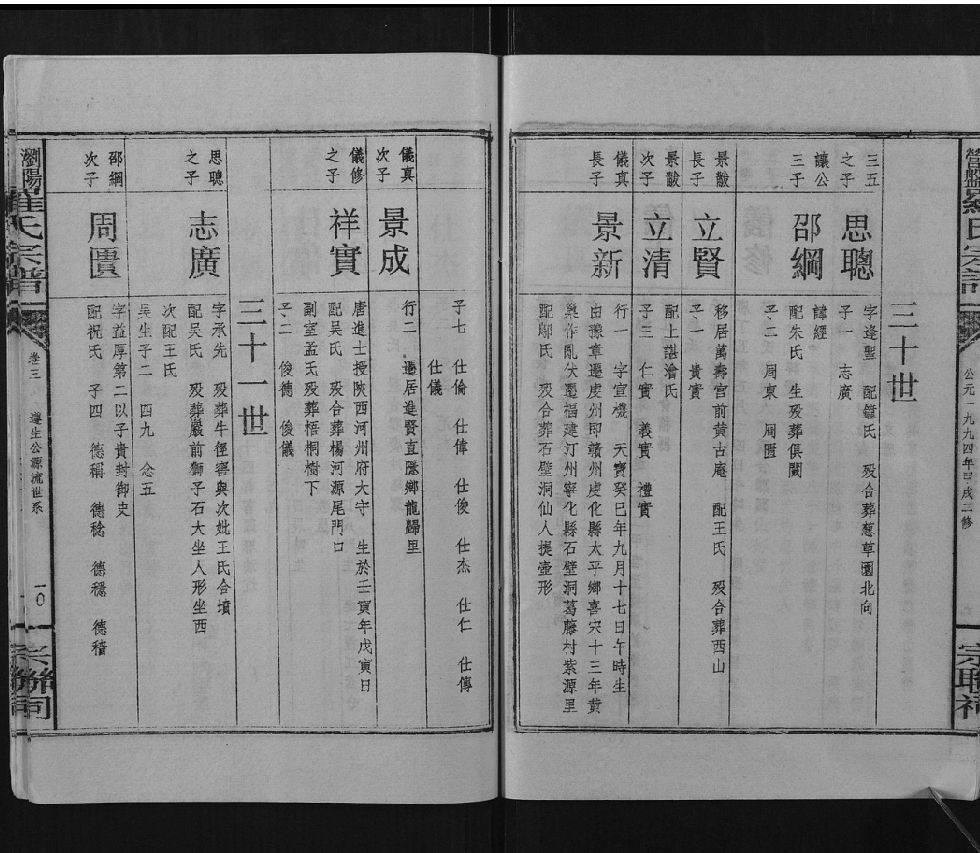 公元一九九四年甲戌三修
三十世
三五
之子
思聰
字逢聖 配鐘氏 殁合葬葱草園北向
子一 志廣
讓公
三子
邵綱
諱經
配朱氏 生殁葬俱闕
子二 周東 周匱
景黻
長子
立賢
移居萬壽宮前黄古庵 配王氏 殁合葬西山
子一 貴實
景黻
次子
立清
配上諶湆氏
子三 仁實 義實 禮實
儀真
長子
景新
行一 字宣機 天寶癸巳年九月十七日午時生
由豫章遷虔州即贛州虔化縣太平鄉喜宍十三年黄
巢作亂伏遷福建汀州寧化縣石壁洞葛藤村紫源里
配鄢氏 殁合葬石壁洞仙人提壺形
子七 仕倫 仕偉 仕俊 仕杰 仕仁 仕傳
仕儀
儀真
次子
景成
行二 遷居進賢直隱鄉龍歸里
儀修
之子
祥實
唐進士授陝西河州府太守 生於壬寅年戊寅日
配吴氏 殁合葬楊河源尾門口
副室孟氏殁葬梧桐樹下
子二 俊德 俊儀
三十一世
思聰
之子
志廣
字承先 殁葬牛徑窨與次妣王氏合墳
配吴氏 殁葬嚴前獅子石大坐人形坐西
次配王氏
吴生子二 四九 念五
邵綱
次子
周匱
字益厚第二以子貴封御史
配祝氏 子四 德稱 德稔 德穩 德穑
瀏陽羅氏宗譜
卷三
遵生公源流世系
一〇